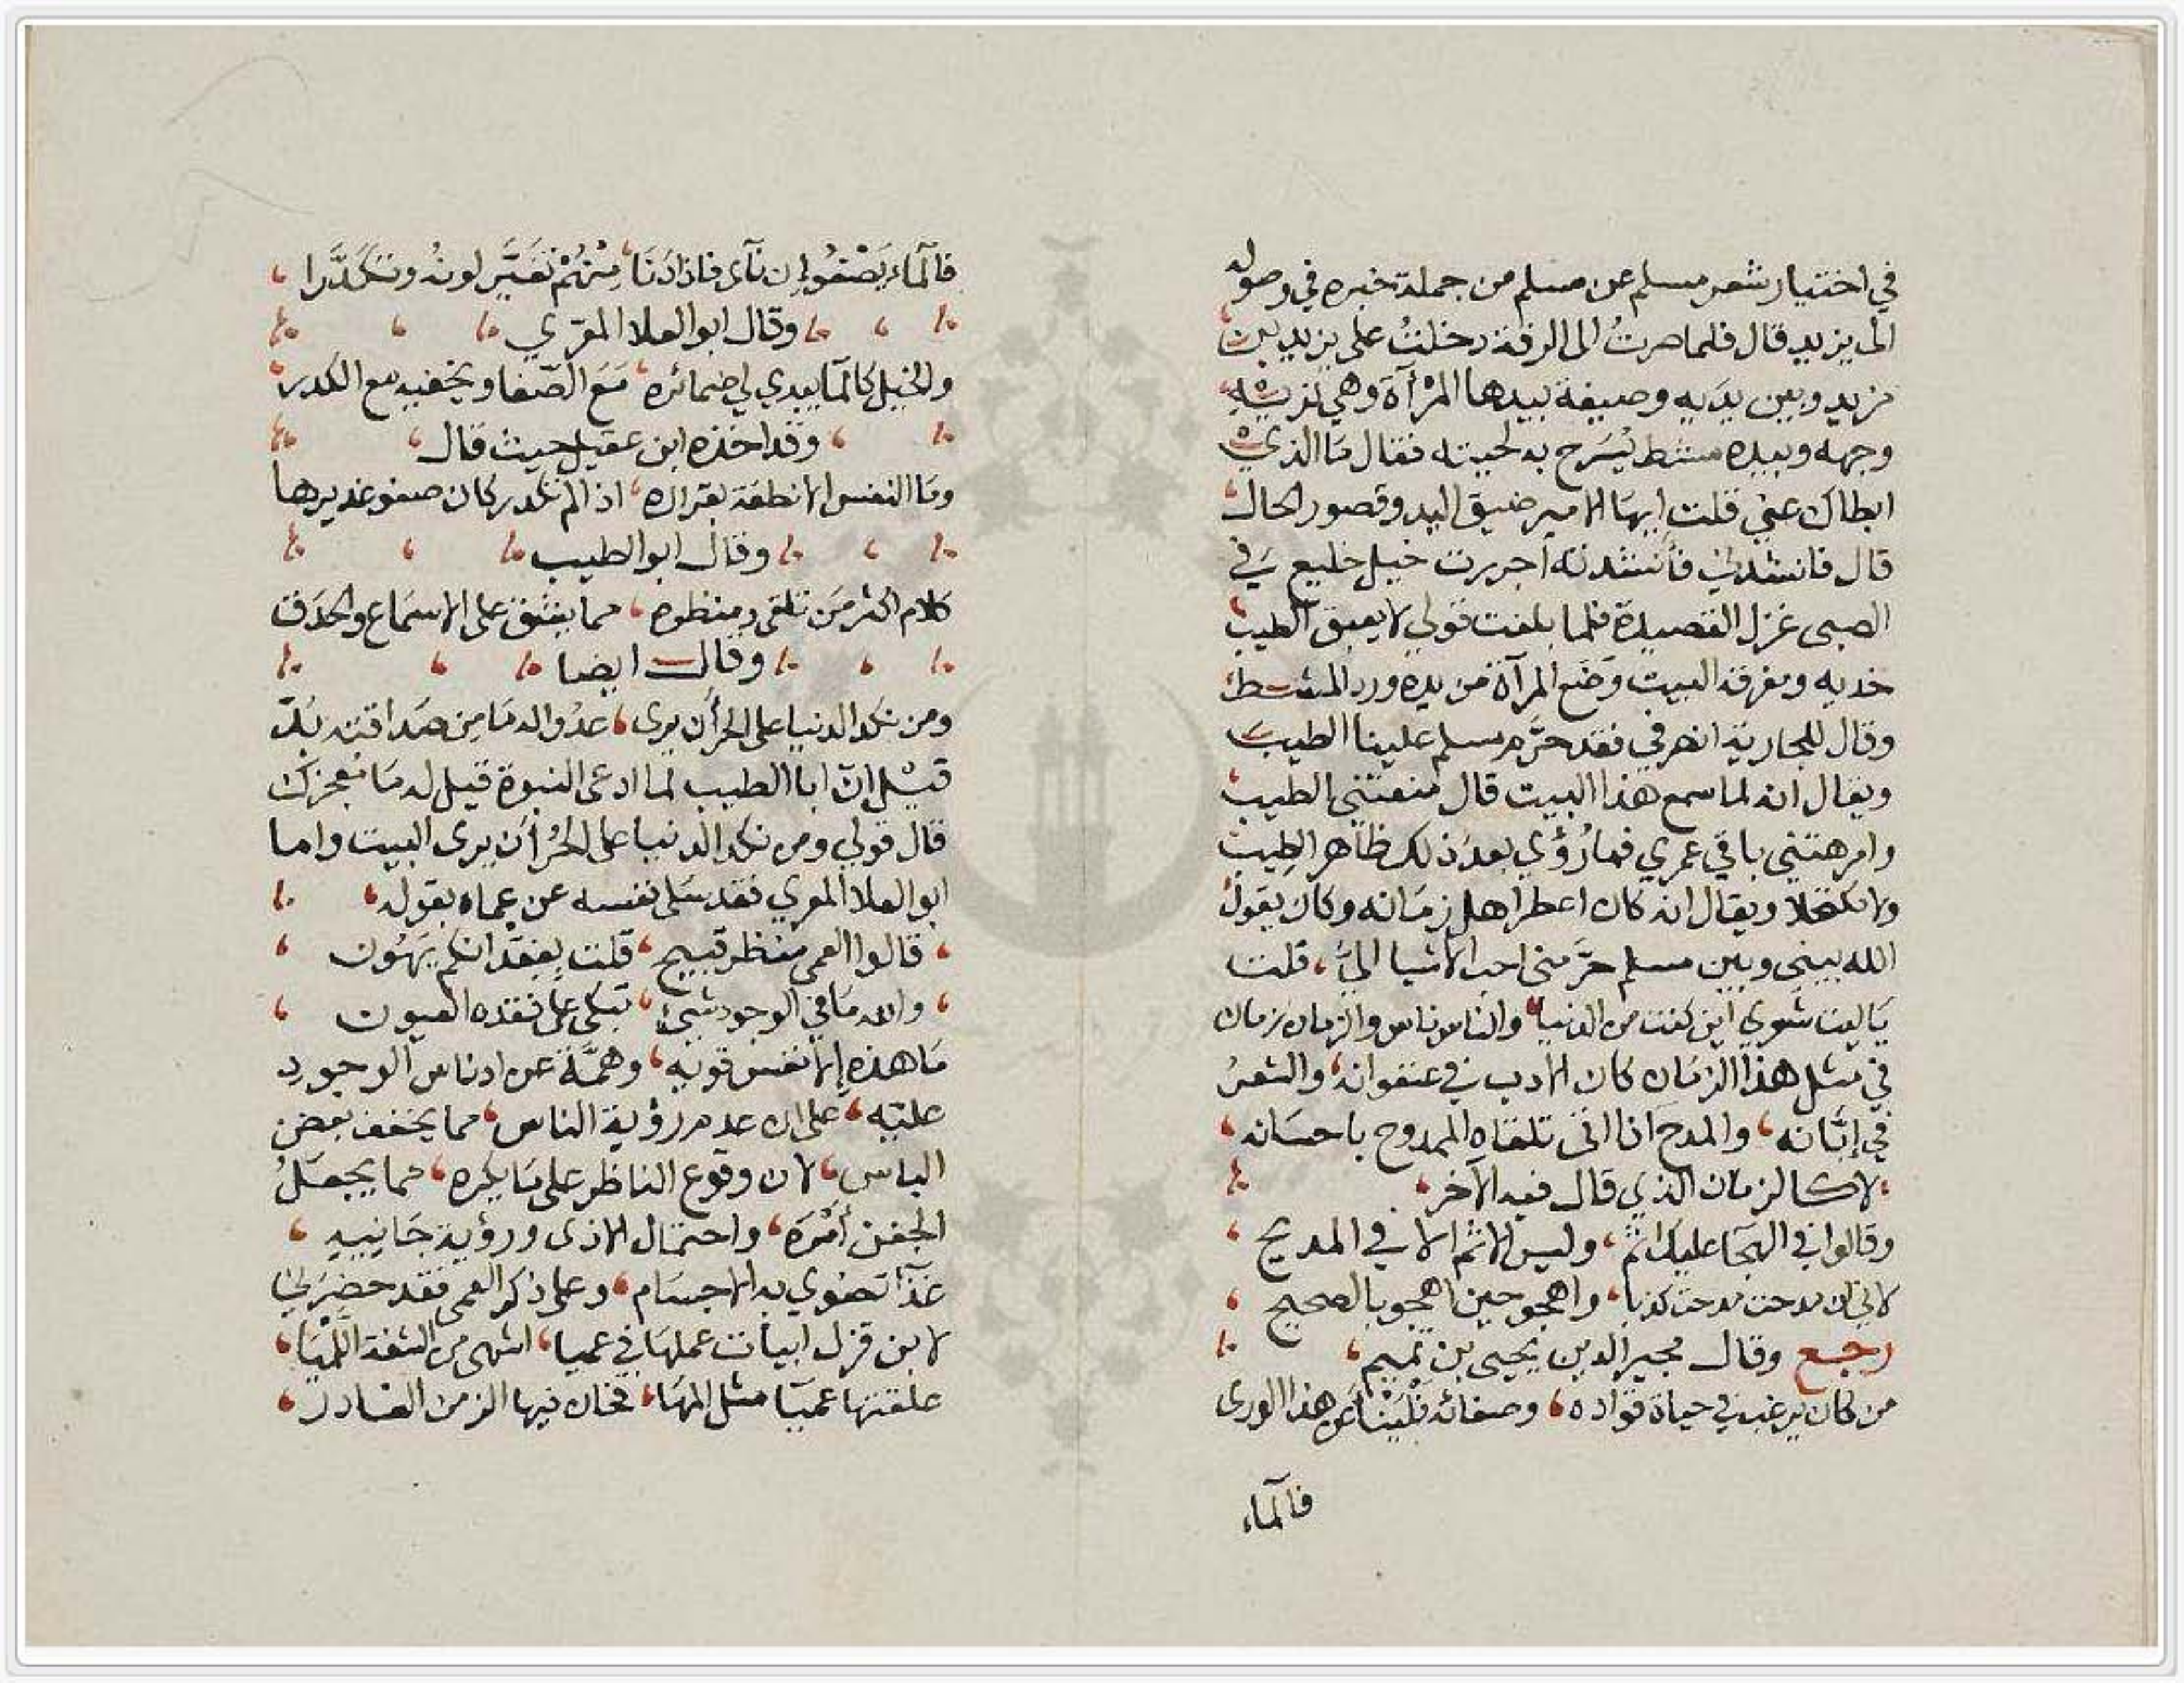 في اختيار شعر مسلم عن مسلم من جملة خبره في وصوله
الى يزيد قال فلما صرتُ الى الرقة دخلتُ على يزيد بن
مزيد وبين يدَيه وصيفة بيدها المرْآة وهي تريه
وجهه وبيده مشط يُسَرح به لحيته فقال مَا الذي
ابطاك عني قلت ايهَا الامير ضيق اليد وقصور الحال
قال فانشدني فأنشدته اجررت خيل خليع في
الصبى غزل القصيدة فلما بلغت قولي لا يعبق الطيب
خديه ومفرقه البيت وَضَع المرآة من يده ورد المشط
وقال للجارية انصرفي فقد حرَّم مسلم علينا الطيب
ويقال انه لما سمع هذا البيت قال منعتني الطيب
وامرهتني باقي عمري فما رُؤي بعدَ ذلك ظاهر الطِيب
ولا مكتحلا ويقال انه كان اعطر اهل زمَانه وكان يقول
الله بيني وبين مسلم حرَّمنى احب الاشيا اليَّ، قلت
يَا ليت شعري اين كنت من الدنيا، والناس ناس والزمان زمان
في مثل هذا الزمَان كان الادب في عنفوانه، والشعرُ
في إبَّانه، والمدح انا اتى تلقاه الممدوح باحسَانه،
لا كالزمان الذي قال فيه الآخر،
وقالوا في الهجَا عليك اثمٌ، وليس الاثم الا في المديح،
لاني ان مدحت مدحت كذبا، واهجو حين اهجو بالصحيح،
رجع وقال مجير الدين يحيى بن تميم،
من كان يرغب في حياة فواده، وصفائه فليَنْأَ عن هذا الورى
فالمآء
فالمآء يَصْفُو إن نآى فاذا دَنَا، مِنْهُمْ تَغَيَّر لونُه وتَكَدَّرا،
وقال ابو العلا المعري
والخِيل كالمآ يبدي لي ضمائره، مَعَ الصّفا ويخفيه مع الكدر
وقد اخذه ابن عقيل حيث قال،
ومَا النفس الا نطفَة بقرارة، اذا لم تكدر كان صفو غديرها
وقال ابو الطيب
كلام اكثر مَن تلقى ومنظره، مما يشق على الاسمَاع والحدَق
وقال ايضا
ومن نكد الدنيا على الحرأن يرى، عدُوا له مَا مِن صَداقته بُدّ
قيْل إنّ ابا الطيب لما ادعى النبوة قيل له مَا مُعجزتك
قال قولي ومن نكد الدنيا على الحُر أن يرى البيت واما
ابو العلا المعري فقد سَلى نفسه عن عماه بقوله،
، قالوا العمى منظر قبيح، قلت بِفقْدانكم يَهُون،
، والله مَا في الوجود شيئ، تبكى على فقده العيون،
مَا هذه إلا نفس قوية، وهمَّة عن ادناس الوجود
عليّه، على ان عدم رؤية الناس، مما يخفف بعض
الباس، لان وقوع الناظر على مَا يكره، مما يجعَلُ
الجفن أمْرَه، واحتمال الاذى ورؤية جَانيه،
غذآ تضوي به الاجسَام، وعلى ذكر العمى فقد حضرَني
لابن قزل ابيات عملهَا في عميا، اشهى من الشفة اللّميَا،
علقتها عميَآ مثل المهَا، فخان فيها الزمن الغادر،